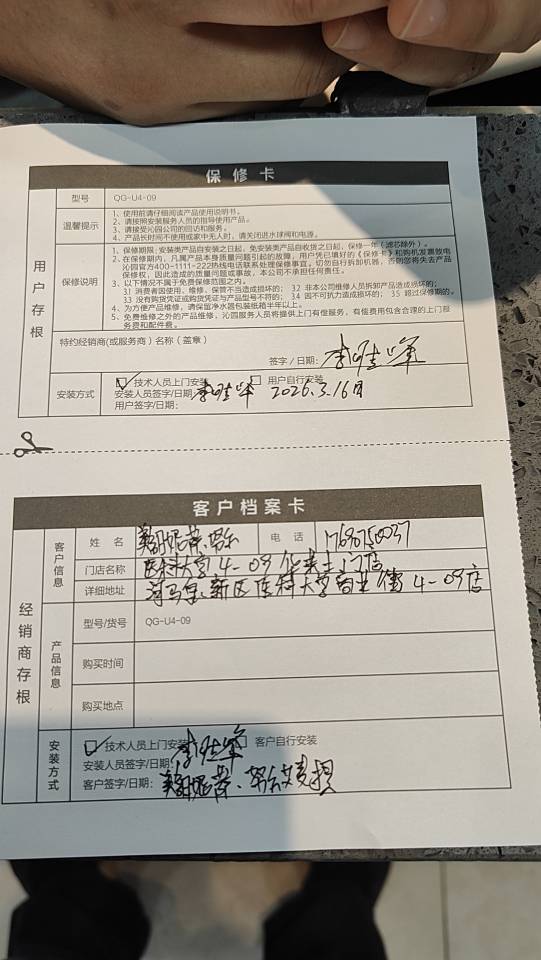 保修卡
用户存根
型号 QG-U4-09
温馨提示
1、使用前请仔细阅读产品使用说明书。
2、请按照安装服务人员的指导使用产品。
3、请接受沁园公司的回访和服务。
4、产品长时间不使用或家中无人时，请关闭进水球阀和电源。
保修说明
1、保修期限:安装类产品自安装之日起，免安装类产品自收货之日起，保修一年（滤芯除外）。
2、在保修期内，凡属产品本身质量问题引起的故障，用户凭已填好的《保修卡》和购机发票致电
沁园官方400-1111-222热线电话联系处理保修事宜。切勿自行拆卸机器，否则您将失去产品
保修权，因此造成的质量问题或事故，本公司不承担任何责任。
3、以下情况不属于免费保修范围之内。
3.1 消费者因使用、维修、保管不当造成损坏的； 3.2 非本公司维修人员拆卸产品造成损坏的；
3.3 没有购货凭证或购货凭证与产品型号不符的； 3.4 因不可抗力造成损坏的； 3.5 超过保修期的。
4、为方便产品维修，请保留净水器包装纸箱半年以上。
5、免费维修之外的产品维修，沁园服务人员将提供上门有偿服务，有偿费用包含合理的上门服
务费和配件费。
特约经销商(或服务商）名称（盖章）
签字/日期:
安装方式
技术人员上门安装 用户自行安装
安装人员签字/日期: 2026.3.16日
用户签字/日期:
客户档案卡
经销商存根
客户信息
姓名 电话
门店名称 医科大学4-09化来士门店
详细地址 新区医科大学商业街4-09店
产品信息
型号/货号 QG-U4-09
购买时间
购买地点
安装方式
技术人员上门安装 客户自行安装
安装人员签字/日期:
客户签字/日期: